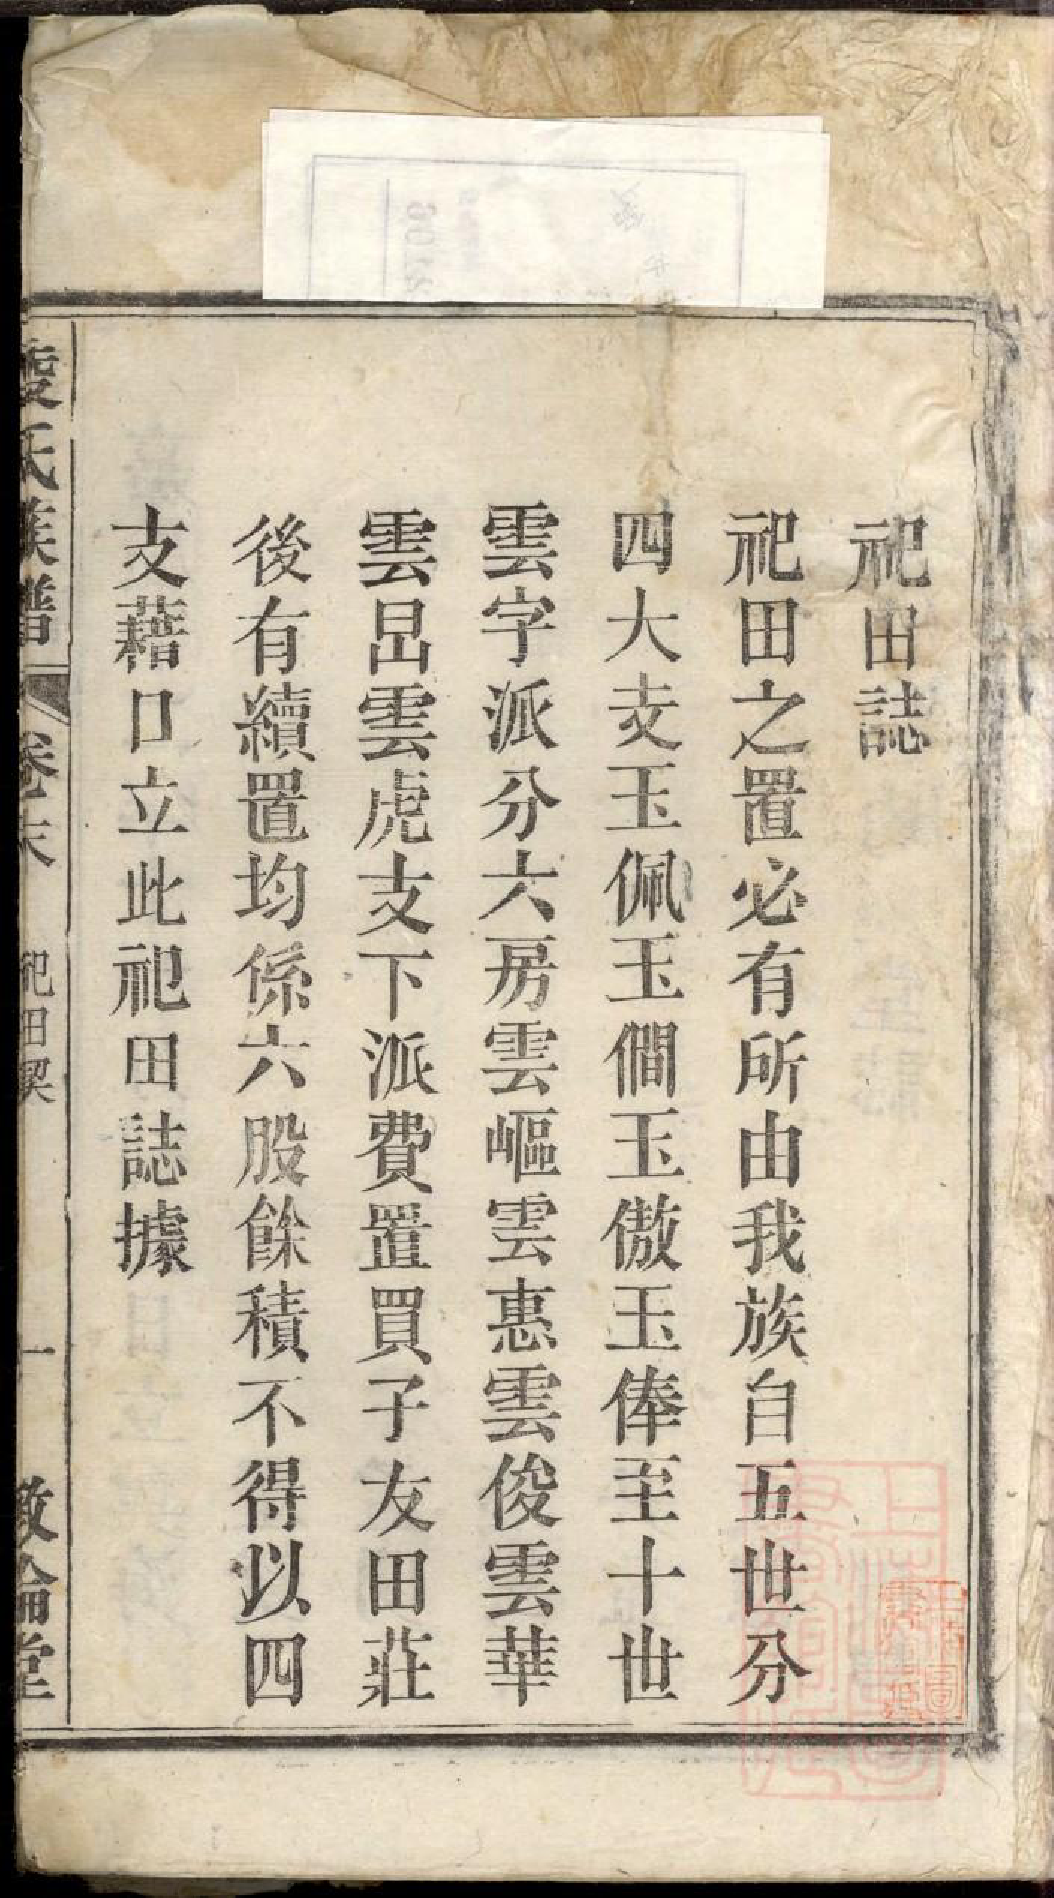 祀田誌
祀田之置必有所由我族自五世分
四大支玉佩玉僩玉傲玉俸至十世
雲字派分六房雲嶇雲惠雲俊雲華
雲昂雲虎支下派費置買子友田莊
後有續置均係六股餘積不得以四
支藉口立此祀田誌據
氏族譜
卷末
祀田契
一
敦倫堂